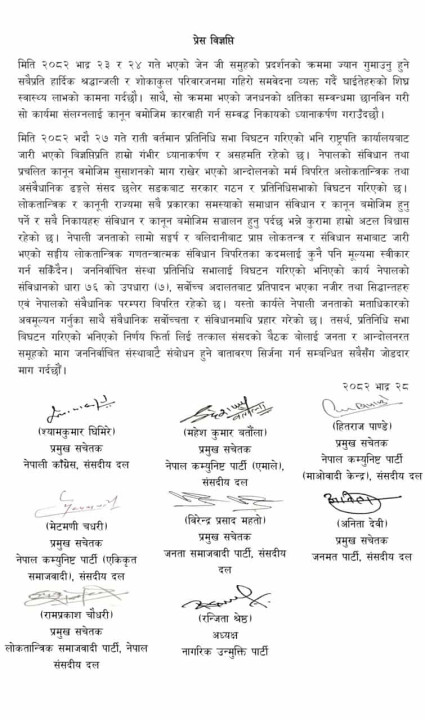 प्रेस विज्ञप्ति
मिति २०८२ भाद्र २३ र २४ गते भएको जेन जी समुहको प्रदर्शनको क्रममा ज्यान गुमाउनु हुने
सबैप्रति हार्दिक श्रद्धाञ्जली र शोकाकुल परिवारजनमा गहिरो समवेदना व्यक्त गर्दै घाईतेहरुको शिघ्र
स्वास्थ्य लाभको कामना गर्दछौं। साथै, सो क्रममा भएको जनधनको क्षतिका सम्बन्धमा छानविन गरी
सो कार्यमा संलग्नलाई कानून वमोजिम कारवाही गर्न सम्वद्ध निकायको ध्यानाकर्षण गराउँदछौं।
मिति २०८२ भदौ २७ गते राती वर्तमान प्रतिनिधि सभा विघटन गरिएको भनि राष्ट्रपति कार्यालयबाट
जारी भएको विज्ञप्तिप्रति हाम्रो गंभीर ध्यानाकर्षण र असहमति रहेको छ। नेपालको संविधान तथा
प्रचलित कानून वमोजिम सुसाशनको माग राखेर भएको आन्दोलनको मर्म विपरित अलोकतान्त्रिक तथा
असंवैधानिक ढङ्गले संसद छलेर सडकबाट सरकार गठन र प्रतिनिधिसभाको विघटन गरिएको छ।
लोकतान्त्रिक र कानूनी राज्यमा सवै प्रकारका समस्याको समाधान संविधान र कानून वमोजिम हुनु
पर्ने र सवै निकायहरु संविधान र कानून वमोजिम सञ्चालन हुनु पर्दछ भन्ने कुरामा हाम्रो अटल विश्वास
रहेको छ। नेपाली जनताको लामो सङ्घर्ष र बलिदानीबाट प्राप्त लोकतन्त्र र संविधान सभाबाट जारी
भएको सङ्घीय लोकतान्त्रिक गणतन्त्रात्मक संविधान विपरितका कदमलाई कुनै पनि मूल्यमा स्वीकार
गर्न सकिँदैन। जननिर्वाचित संस्था प्रतिनिधि सभालाई विघटन गरिएको भनिएको कार्य नेपालको
संविधानको धारा ७६ को उपधारा (७), सर्वोच्च अदालतबाट प्रतिपादन भएका नजीर तथा सिद्धान्तहरु
एवं नेपालको संवैधानिक परम्परा विपरित रहेको छ। यस्तो कार्यले नेपाली जनताको मताधिकारको
अवमूल्यन गर्नुका साथै संवैधानिक सर्वोच्चता र संविधानमाथि प्रहार गरेको छ। तसर्थ, प्रतिनिधि सभा
विघटन गरिएको भनिएको निर्णय फिर्ता लिई तत्काल संसदको बैठक बोलाई जनता र आन्दोलनरत
समूहको माग जननिर्वाचित संस्थाबाटै संवोधन हुने वातावरण सिर्जना गर्न सम्बन्धित सवैसँग जोडदार
माग गर्दछौं।
२०८२ भाद्र २८
(श्यामकुमार घिमिरे)
प्रमुख सचेतक
नेपाली काँग्रेस, संसदीय दल
(महेश कुमार बर्तौला)
प्रमुख सचेतक
नेपाल कम्युनिष्ट पार्टी (एमाले),
संसदीय दल
(हितराज पाण्डे)
प्रमुख सचेतक
नेपाल कम्युनिष्ट पार्टी
(माओवादी केन्द्र), संसदीय दल
(मेटमणी चधरी)
प्रमुख सचेतक
नेपाल कम्युनिष्ट पार्टी (एकिकृत
समाजवादी), संसदीय दल
(विरेन्द्र प्रसाद महतो)
प्रमुख सचेतक
जनता समाजवादी पार्टी, संसदीय
दल
(अनिता देवी)
प्रमुख सचेतक
जनमत पार्टी, संसदीय दल
(रामप्रकाश चौधरी)
प्रमुख सचेतक
लोकतान्त्रिक समाजवादी पार्टी, नेपाल
संसदीय दल
(रन्जिता श्रेष्ठ)
अध्यक्ष
नागरिक उन्मुक्ति पार्टी